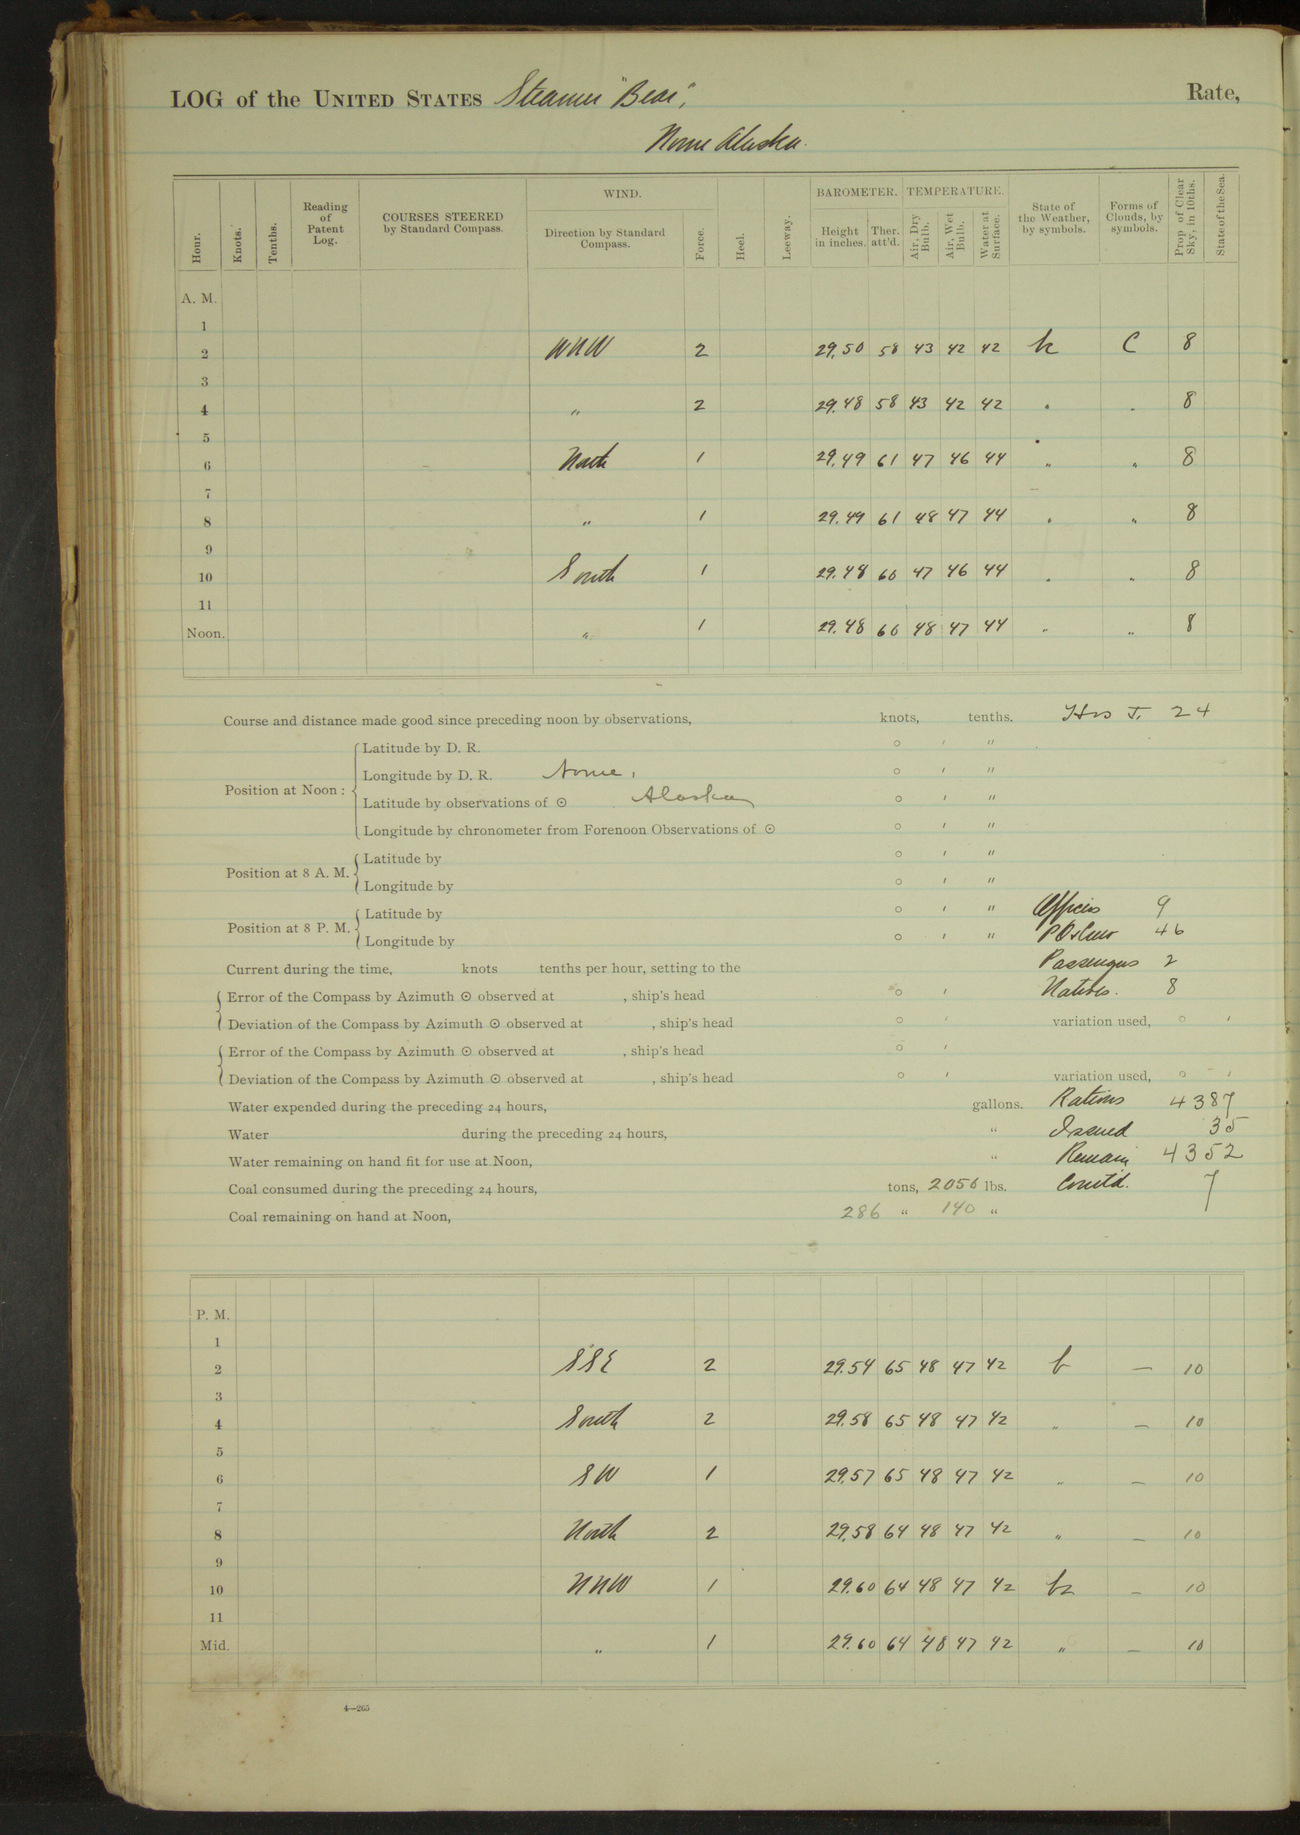 LOG of the UNITED STATES Steamer "Bear", Rate,
Nome Alaska.
Hour. Knots. Tenths. Reading of Patent Log. COURSES STEERED by Standard Compass. WIND. Direction by Standard Compass. Force. Heel. Leeway. BAROMETER. Height in inches. Ther. att'd. TEMPERATURE. Air, Dry Bulb. Air, Wet Bulb. Water at Surface. State of the Weather, by symbols. Forms of Clouds, by symbols. Prop of Clear Sky, in 10ths. State of the Sea.
A. M.
1
2 WNW 2 29.50 58 43 42 42 C 8
3
4 " 2 29.48 58 43 42 42 " " 8
5
6 North 1 29.49 61 47 46 44 " " 8
7
8 " 1 29.49 61 48 47 44 " " 8
9
10 South 1 29.48 60 47 46 44 " " 8
11
Noon. " 1 29.48 60 48 47 44 " " 8
Course and distance made good since preceding noon by observations, knots, tenths. 24
Position at Noon :
Latitude by D. R. ° ′ ″
Longitude by D. R. Nome, ° ′ ″
Latitude by observations of ☉ Alaska ° ′ ″
Longitude by chronometer from Forenoon Observations of ☉ ° ′ ″
Position at 8 A. M. Latitude by ° ′ ″
Longitude by ° ′ ″
Position at 8 P. M. Latitude by ° ′ ″ Officers 9
Longitude by ° ′ ″ 46
Current during the time, knots tenths per hour, setting to the Passengers 2
Error of the Compass by Azimuth ☉ observed at , ship's head ° ′ Natives. 8
Deviation of the Compass by Azimuth ☉ observed at , ship's head ° ′ variation used, ° ′
Error of the Compass by Azimuth ☉ observed at , ship's head ° ′
Deviation of the Compass by Azimuth ☉ observed at , ship's head ° ′ variation used, ° ′
Water expended during the preceding 24 hours, gallons. Rations 4387
Water during the preceding 24 hours, " Issued 35
Water remaining on hand fit for use at Noon, " Remain 4352
Coal consumed during the preceding 24 hours, tons, 2056 lbs. 7
Coal remaining on hand at Noon, 286 " 140 "
P. M.
1
2 SSE 2 29.54 65 48 47 42 b — 10
3
4 South 2 29.58 65 48 47 42 " — 10
5
6 SW 1 29.57 65 48 47 42 " — 10
7
8 North 2 29.58 64 48 47 42 " — 10
9
10 NNW 1 29.60 64 48 47 42 bz — 10
11
Mid. " 1 29.60 64 48 47 42 " — 10
4—265